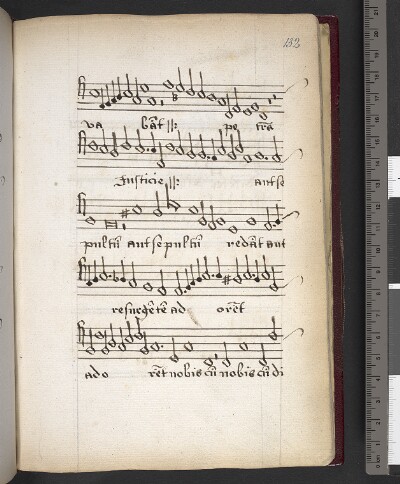 132
va bāt :||: pe trā
Iusticie :||: aut se
pultū aut sepultū redāt aut
resurgētē ad orēt
ado rēt nobis cū nobis cū di